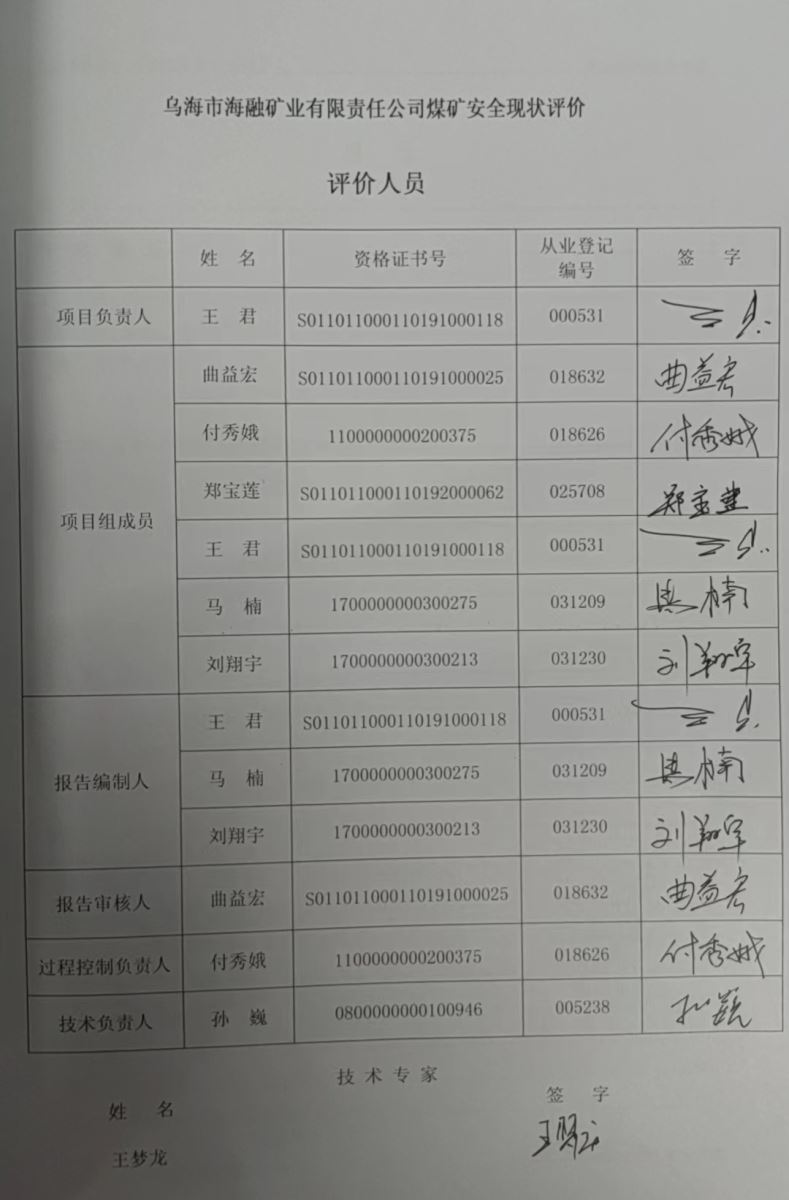 乌海市海融矿业有限责任公司煤矿安全现状评价
评价人员
姓 名 资格证书号 从业登记编号 签 字
项目负责人 王 君 S011011000110191000118 000531 王君
项目组成员 曲益宏 S011011000110191000025 018632 曲益宏
付秀娥 1100000000200375 018626 付秀娥
郑宝莲 S011011000110192000062 025708 郑宝莲
王 君 S011011000110191000118 000531 王君
马 楠 1700000000300275 031209 马楠
刘翔宇 1700000000300213 031230 刘翔宇
报告编制人 王 君 S011011000110191000118 000531 王君
马 楠 1700000000300275 031209 马楠
刘翔宇 1700000000300213 031230 刘翔宇
报告审核人 曲益宏 S011011000110191000025 018632 曲益宏
过程控制负责人 付秀娥 1100000000200375 018626 付秀娥
技术负责人 孙 巍 0800000000100946 005238 孙巍
技 术 专 家
姓 名 签 字
王梦龙